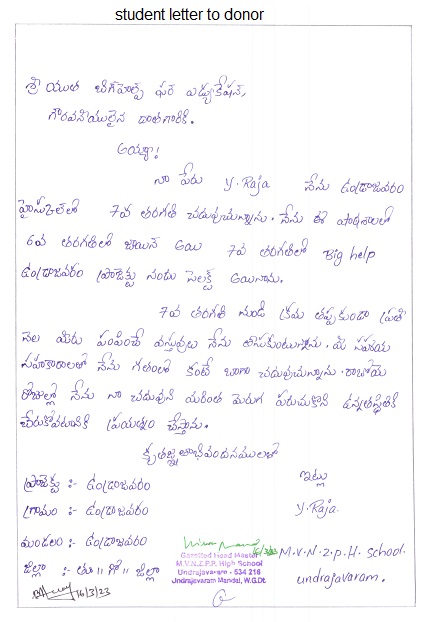 student letter to donor
శ్రీ యుత బిగ్‌హెల్ప్ ఫర్ ఎడ్యుకేషన్,
గౌరవనీయులైన దాతగారికి.
అయ్యా!
నా పేరు Y. Raja నేను ఉండ్రాజవరం
హైస్కూల్‌లో 7వ తరగతి చదువుచున్నాను. నేను ఈ పాఠశాలలో
6వ తరగతిలో జాయిన్ అయి 7వ తరగతిలో Big help
ఉండ్రాజవరం ప్రాజెక్టు నందు సెలక్ట్ అయినాను.
7వ తరగతి నుండి క్రమం తప్పకుండా ప్రతి
నెల మీరు పంపించే వస్తువులు నేను తీసుకుంటున్నాను. మీ సహాయ
సహకారాలతో నేను గతంలో కంటే బాగా చదువుచున్నాను. రాబోయే
రోజుల్లో నేను నా చదువుని మరింత మెరుగు పరుచుకొని ఉన్నతస్థితికి
చేరుకోవటానికి ప్రయత్నం చేస్తాను.
కృతజ్ఞతాభివందనములతో
ప్రాజెక్టు :- ఉండ్రాజవరం ఇట్లు
గ్రామం :- ఉండ్రాజవరం Y. Raja.
మండలం :- ఉండ్రాజవరం
జిల్లా :- తూ॥ గో॥ జిల్లా
16/3/23
16/3/23
Gazetted Head Master
M.V.N.Z.P.P. High School
Undrajavaram - 534 216
Undrajavaram Mandal, W.G.Dt.
M.V.N.Z.P.H. school.
undrajavaram.